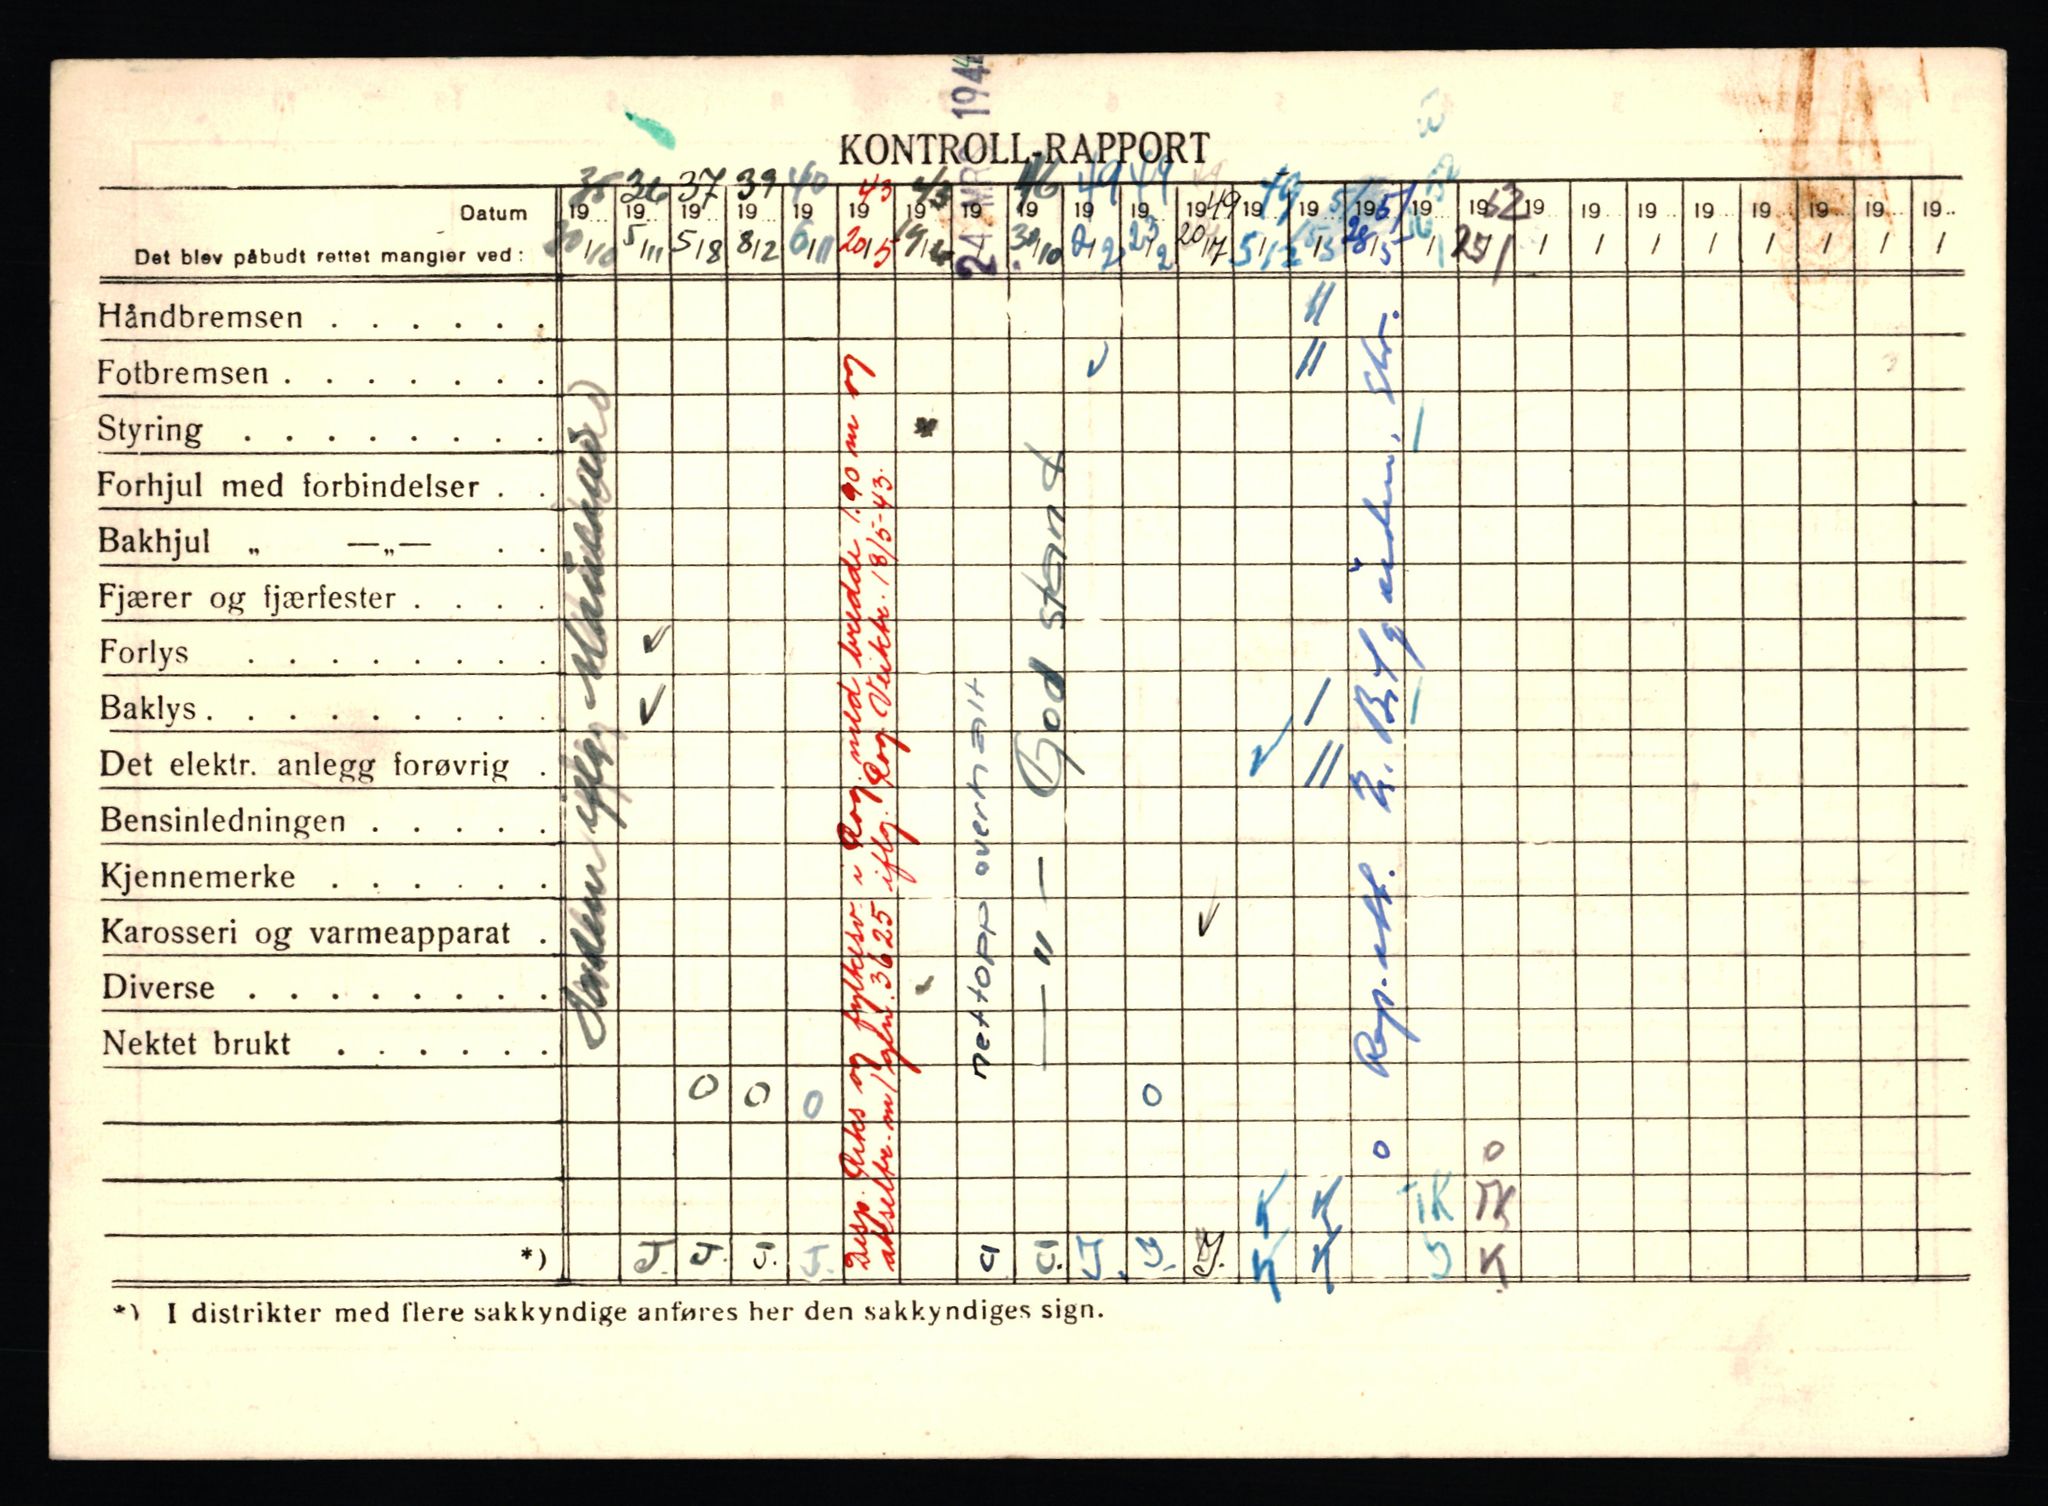 24 MR 1944
KONTROLL-RAPPORT
Datum 19 35 19 36 19 37 19 39 19 40 19 43 19 43 19 19 46 19 49 19 49 19 49 19 49 19 51 19 51 19 19 52 19 19 19 19 19 19 19 19
Det blev påbudt rettet mangler ved: 30/10 5/11 5/8 8/2 6/11 20/5 30/10 2/2 23/2 20/7 5/12 15/3 28/5 / 25/1 / / / / / / / /
Håndbremsen . . . . . . //
Fotbremsen . . . . . . . ✓ //
Styring . . . . . . . . /
Forhjul med forbindelser . .
Bakhjul „ —„— . .
Fjærer og fjærfester . . . .
Forlys . . . . . . . . ✓
Baklys . . . . . . . . . ✓ / /
Det elektr. anlegg forøvrig . ✓ //
Bensinledningen . . . . .
Kjennemerke . . . . . .
Karosseri og varmeapparat . ✓
Diverse . . . . . . . .
Nektet brukt . . . . .
0 0 0 0
0 0
K K TK TK
*) J. J. J. J. J J. J. J. J. K K J K
Disp. Riks og fylkesv. i Rog. med bredde 1.90 m og
akseltr. m/ gln. 3625 iflg. Rog. Veiktr. 18/5-43.
nettopp overhalt
— „ — God stand
Rap. att.
*) I distrikter med flere sakkyndige anføres her den sakkyndiges sign.